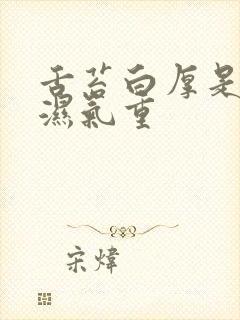 舌苔白厚是
濕氣重
宋煒